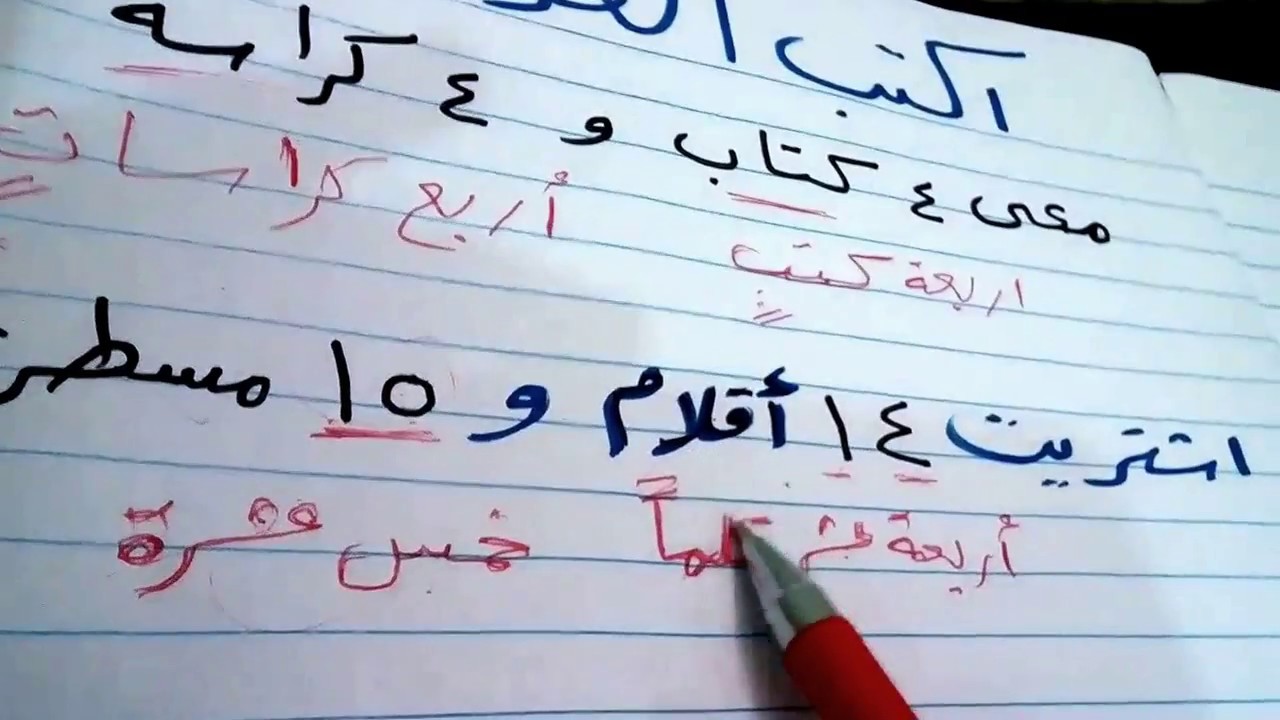 اكتب
معى ٤ كتاب و ٤ كراسه
اربعة كتب أربع كراسات
اشتريت ١٤ أقلام و ١٥
أربعة عشر قلماً خمس عشرة